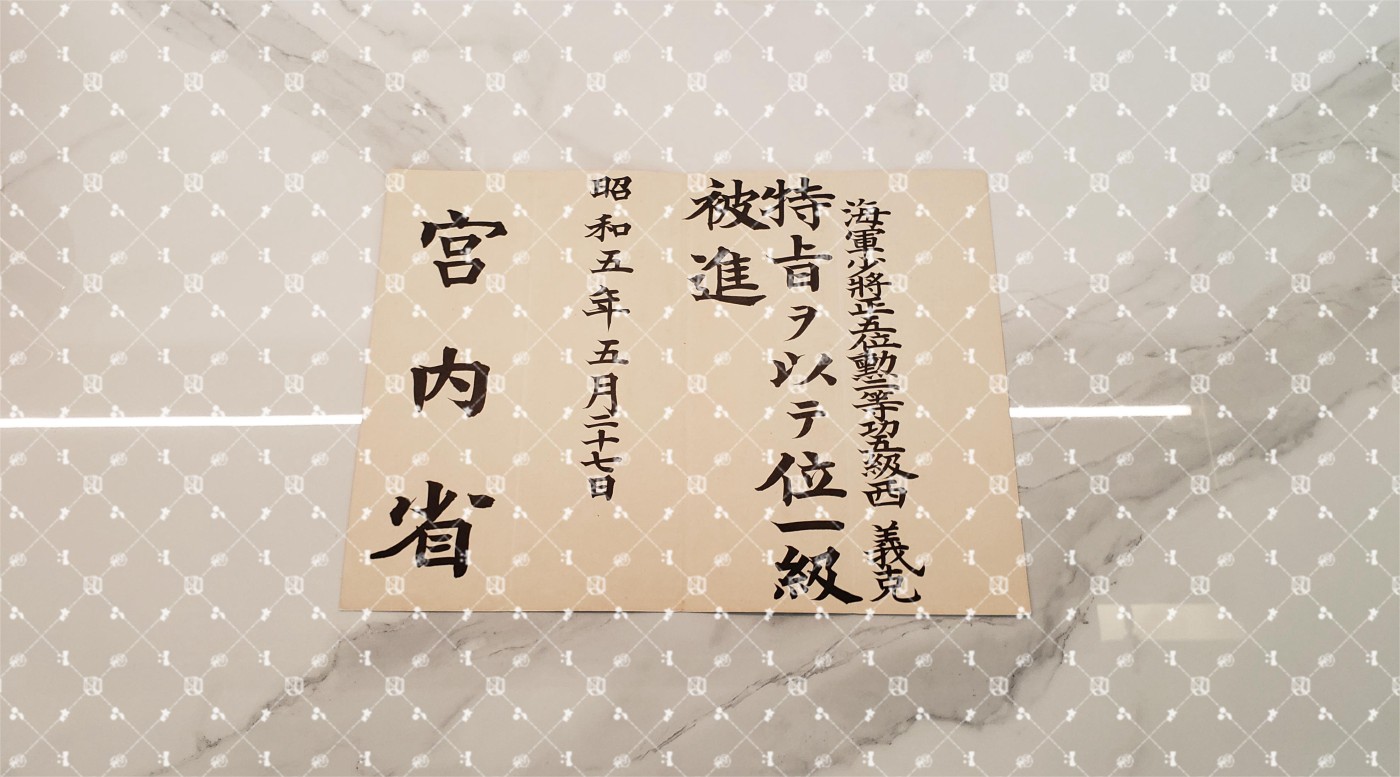 海軍少將正五位勲二等功五級西 義克
特旨ヲ以テ位一級
被進
昭和五年五月二十七日
宮内省